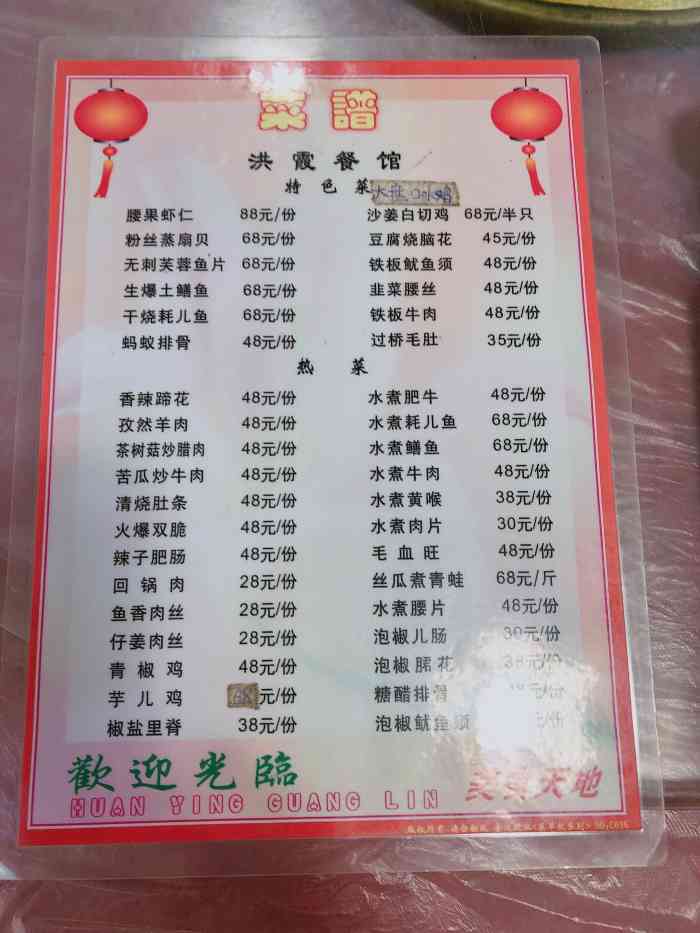 菜譜
洪霞餐馆
特色菜
腰果虾仁 88元/份 沙姜白切鸡 68元/半只
粉丝蒸扇贝 68元/份 豆腐烧脑花 45元/份
无刺芙蓉鱼片 68元/份 铁板鱿鱼须 48元/份
生爆土鳝鱼 68元/份 韭菜腰丝 48元/份
干烧耗儿鱼 68元/份 铁板牛肉 48元/份
蚂蚁排骨 48元/份 过桥毛肚 35元/份
热菜
香辣蹄花 48元/份 水煮肥牛 48元/份
孜然羊肉 48元/份 水煮耗儿鱼 68元/份
茶树菇炒腊肉 48元/份 水煮鳝鱼 68元/份
苦瓜炒牛肉 48元/份 水煮牛肉 48元/份
清烧肚条 48元/份 水煮黄喉 38元/份
火爆双脆 48元/份 水煮肉片 30元/份
辣子肥肠 48元/份 毛血旺 48元/份
回锅肉 28元/份 丝瓜煮青蛙 68元/斤
鱼香肉丝 28元/份 水煮腰片 48元/份
仔姜肉丝 28元/份 泡椒儿肠 30元/份
青椒鸡 48元/份 泡椒腒花 38元/份
芋儿鸡 68元/份 糖醋排骨 元/份
椒盐里脊 38元/份 泡椒鱿鱼须 元/份
歡迎光臨 美食天地
HUAN YING GUANG LIN